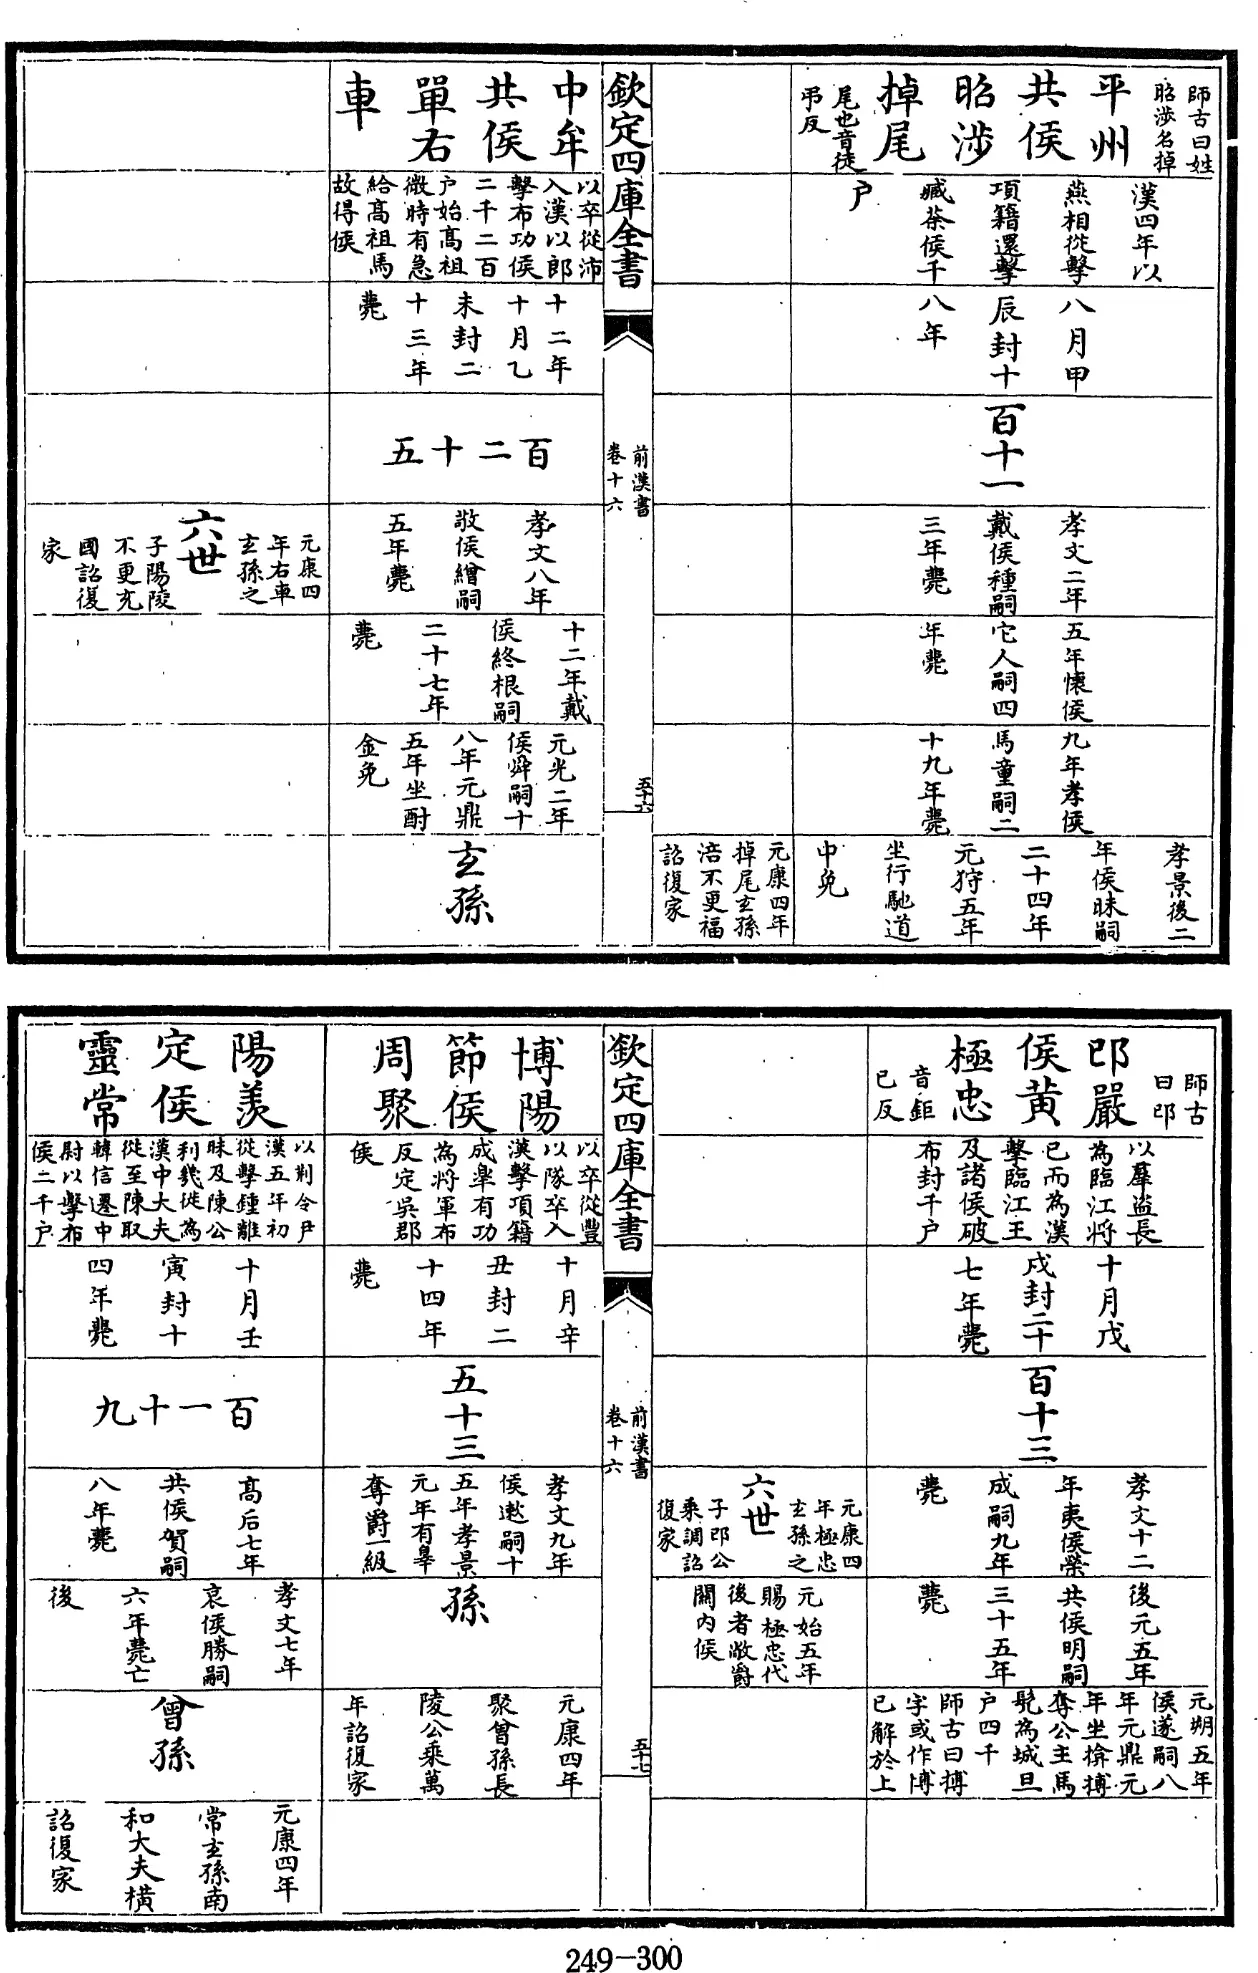 師古曰姓
昭渉名掉
平州
共侯
昭渉
掉尾
尾也音徒
弔反
漢四年以
燕相從擊
項籍還擊
臧荼侯千
户
八月甲
辰封十
八年
百十一
孝文二年
戴侯種嗣
三年薨
五年懷侯
它人嗣四
年薨
九年孝侯
馬童嗣二
十九年薨
孝景後二
年侯昧嗣
二十四年
元狩五年
坐行馳道
中免
元康四年
掉尾玄孫
涪不更福
詔復家
欽定四庫全書
前漢書
卷十六
五十六
中牟
共侯
單右
車
以卒從沛
入漢以郎
擊布功侯
二千二百
户始髙祖
微時有急
給髙祖馬
故得侯
十二年
十月乙
未封二
十三年
薨
百二十五
孝文八年
敬侯繒嗣
五年薨
十二年戴
侯終根嗣
二十七年
薨
元光二年
侯舜嗣十
八年元鼎
五年坐酎
金免
玄孫
元康四
年右車
玄孫之
六世
子陽陵
不更充
國詔復
家
師古
曰邔
邔嚴
侯黄
極忠
音鉅
已反
以羣盗長
為臨江將
已而為漢
擊臨江王
及諸侯破
布封千户
十月戊
戌封二十
七年薨
百十三
孝文十二
年夷侯榮
成嗣九年
薨
後元五年
共侯明嗣
三十五年
薨
元朔五年
侯遂嗣八
年元鼎元
年坐揜摶
奪公主馬
髠為城旦
户四千
師古曰摶
字或作博
已解於上
元康四
年極忠
玄孫之
六世
子邔公
乘調詔
復家
元始五年
賜極忠代
後者敞爵
關内侯
欽定四庫全書
前漢書
卷十六
五十七
博陽
節侯
周聚
以卒從豐
以隊卒入
漢擊項籍
成臯有功
為將軍布
反定吳郡
侯
十月辛
丑封二
十四年
薨
五十三
孝文九年
侯遬嗣十
五年孝景
元年有辠
奪爵一級
孫
元康四年
聚曾孫長
陵公乘萬
年詔復家
陽羡
定侯
靈常
以荆令尹
漢五年初
從擊鍾離
眛及陳公
利幾徙為
漢中大夫
從至陳取
韓信還中
尉以擊布
侯二千户
十月壬
寅封十
四年薨
百一十九
髙后七年
共侯賀嗣
八年薨
孝文七年
哀侯勝嗣
六年薨亡
後
曾孫
元康四年
常玄孫南
和大夫橫
詔復家
249-300